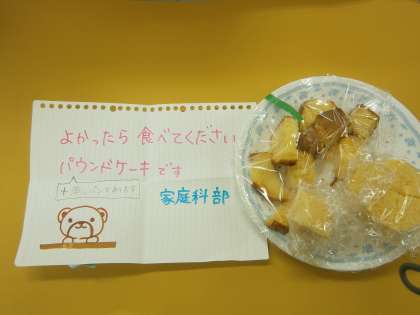 よかったら 食べてください
パウンドケーキ です
家庭科部